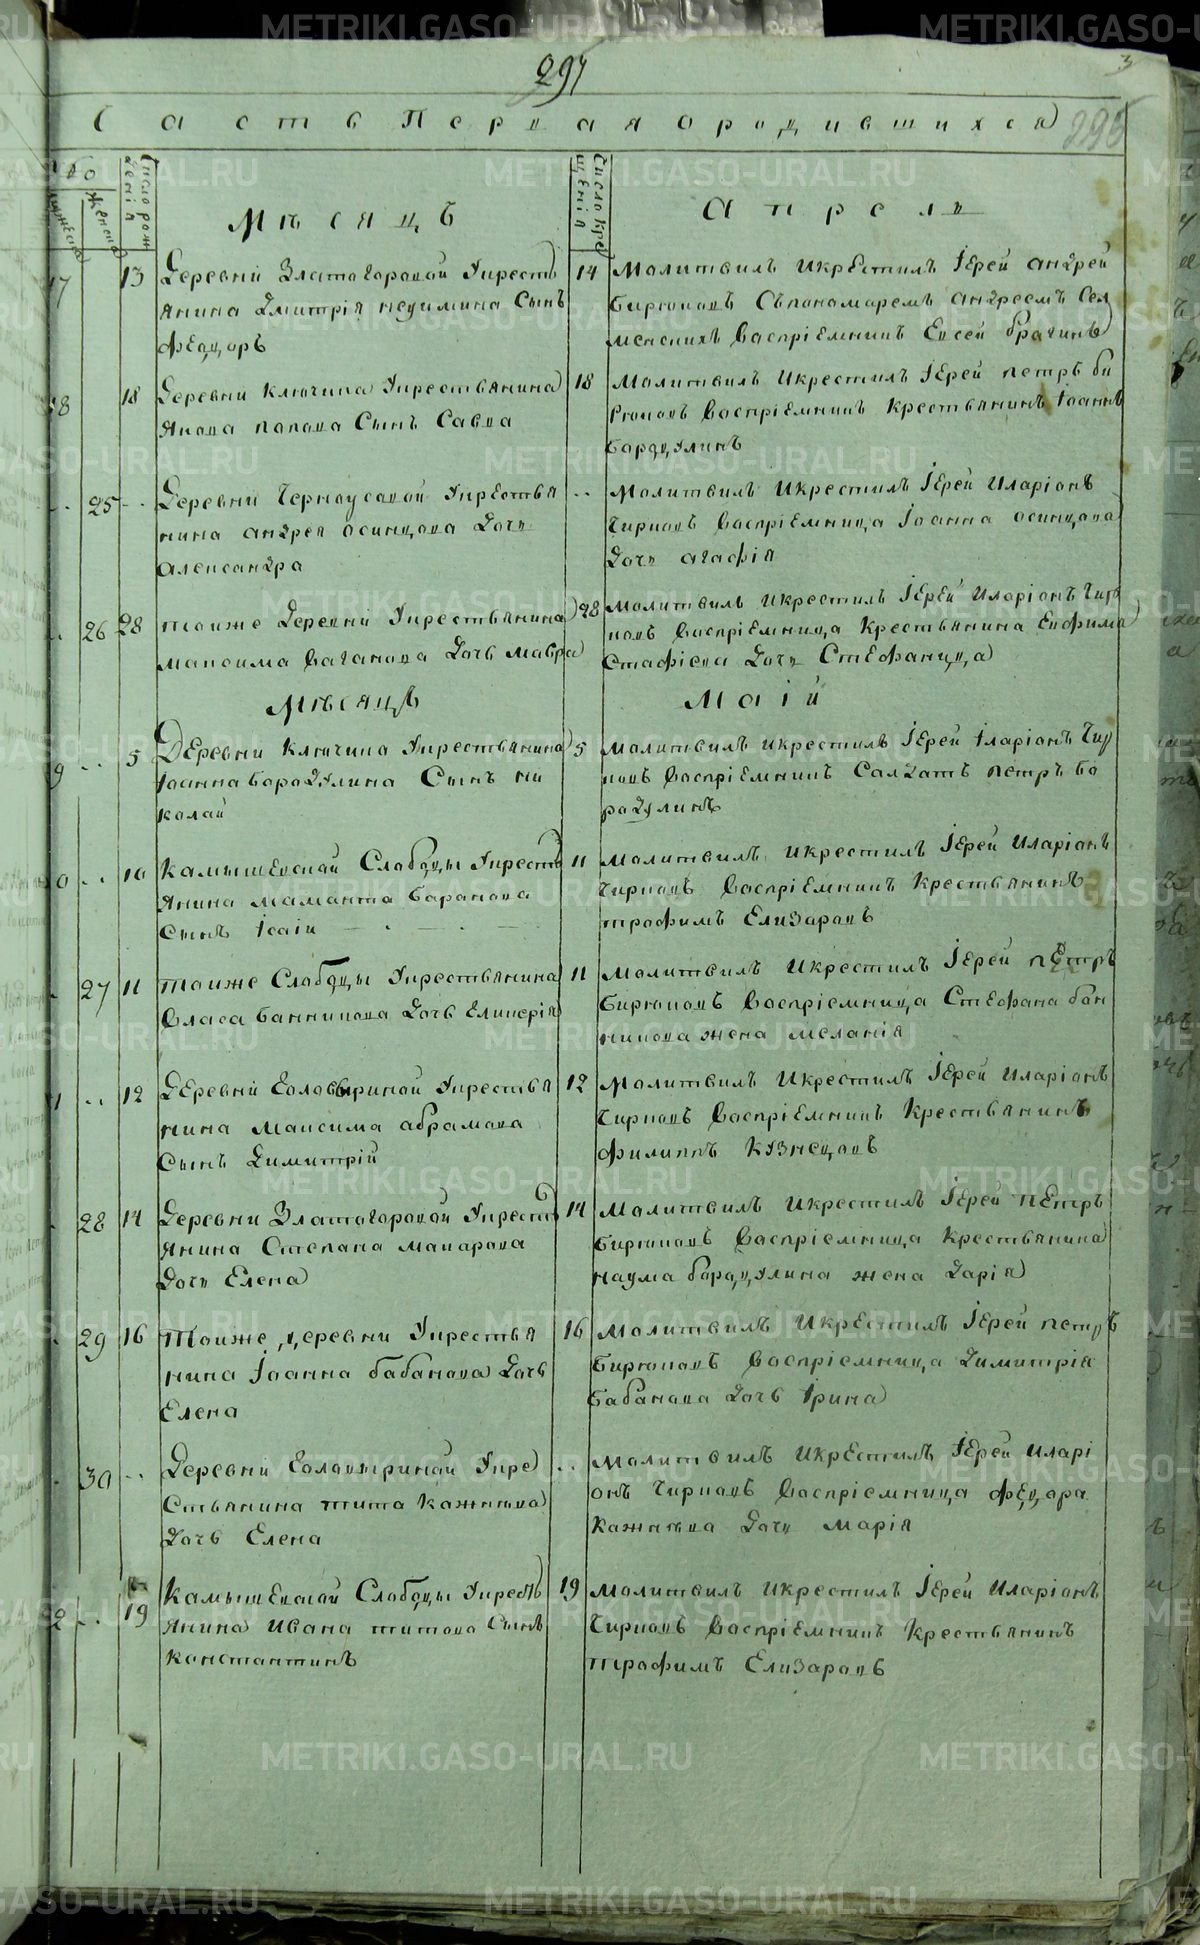 METRIKI.GASO-URAL.RU
297
295
Часть Первая о родившихся
Число рожденія
Число крещенія
Мѣсяцъ Апрель
13 Деревни Златогоровой у кресть
янина Дмитрія неуимина Сынъ
Феодоръ
14 Молитвилъ и крестилъ Іерей андрей
Бирюковъ Съ пономаремъ андреемъ Сел
менскихъ Воспріемникъ Евсей брагинъ
18 Деревни Ключина у крестьянина
Якова попова Сынъ Савва
18 Молитвилъ и крестилъ Іерей петръ би
рюковъ Воспріемникъ крестьянинъ Іоаннъ
Бородулинъ
25 Деревни Черноусовой у крестья
нина андрея осинцова Дочь
александра
Молитвилъ и крестилъ Іерей Иларіонъ
Чирковъ Воспріемница Іоанна осинцова
Дочь агафія
26 28 тоиже Деревни у крестьянина
максима Ваганова Дочь мавра
28 Молитвилъ и крестилъ Іерей Иларіонъ Чир
ковъ Воспріемница крестьянина Евфима
Стафіева Дочь Стефанида
Мѣсяцъ Маій
5 Деревни Ключина у крестьянина
Іоанна бородулина Сынъ ни
колай
5 Молитвилъ и крестилъ Іерей Іларіонъ Чир
ковъ Воспріемникъ Салдатъ петръ Бо
радулинъ
10 Камышевской Слободы у кресть
янина маманта баранова
Сынъ Ісаіи
11 Молитвилъ и крестилъ Іерей Иларіонъ
Чирковъ Воспріемникъ крестьянинъ
трофимъ Елизаровъ
27 11 тоиже Слободы у крестьянина
Власа банникова Дочь Еликерія
11 Молитвилъ и крестилъ Іерей петръ
Бирюковъ Воспріемница Стефана бан
никова жена меланія
12 Деревни Головыриной у крестья
нина максима абрамова
Сынъ Димитрій
12 Молитвилъ и крестилъ Іерей Иларіонъ
Чирковъ Воспріемникъ крестьянинъ
филиппъ кузнецовъ
28 14 Деревни Златогоровой у кресть
янина Степана макарова
Дочь Елена
14 Молитвилъ и крестилъ Іерей петръ
Бирюковъ Воспріемница крестьянина
наума бородулина жена Дарія
29 16 тоиже деревни у крестья
нина Іоанна бабанова Дочь
Елена
16 Молитвилъ и крестилъ Іерей петръ
Бирюковъ Воспріемница Димитрія
бабанова Дочь Ірина
30 Деревни Головыриной у кре
стьянина тита кожнева
Дочь Елена
Молитвилъ и крестилъ Іерей илари
онъ Чирковъ Воспріемница феодора
кожнева Дочь марія
19 Камышевской Слободы у кресть
янина Ивана титова Сынъ
константинъ
19 Молитвилъ и крестилъ Іерей Иларіонъ
Чирковъ Воспріемникъ крестьянинъ
трофимъ Елизаровъ